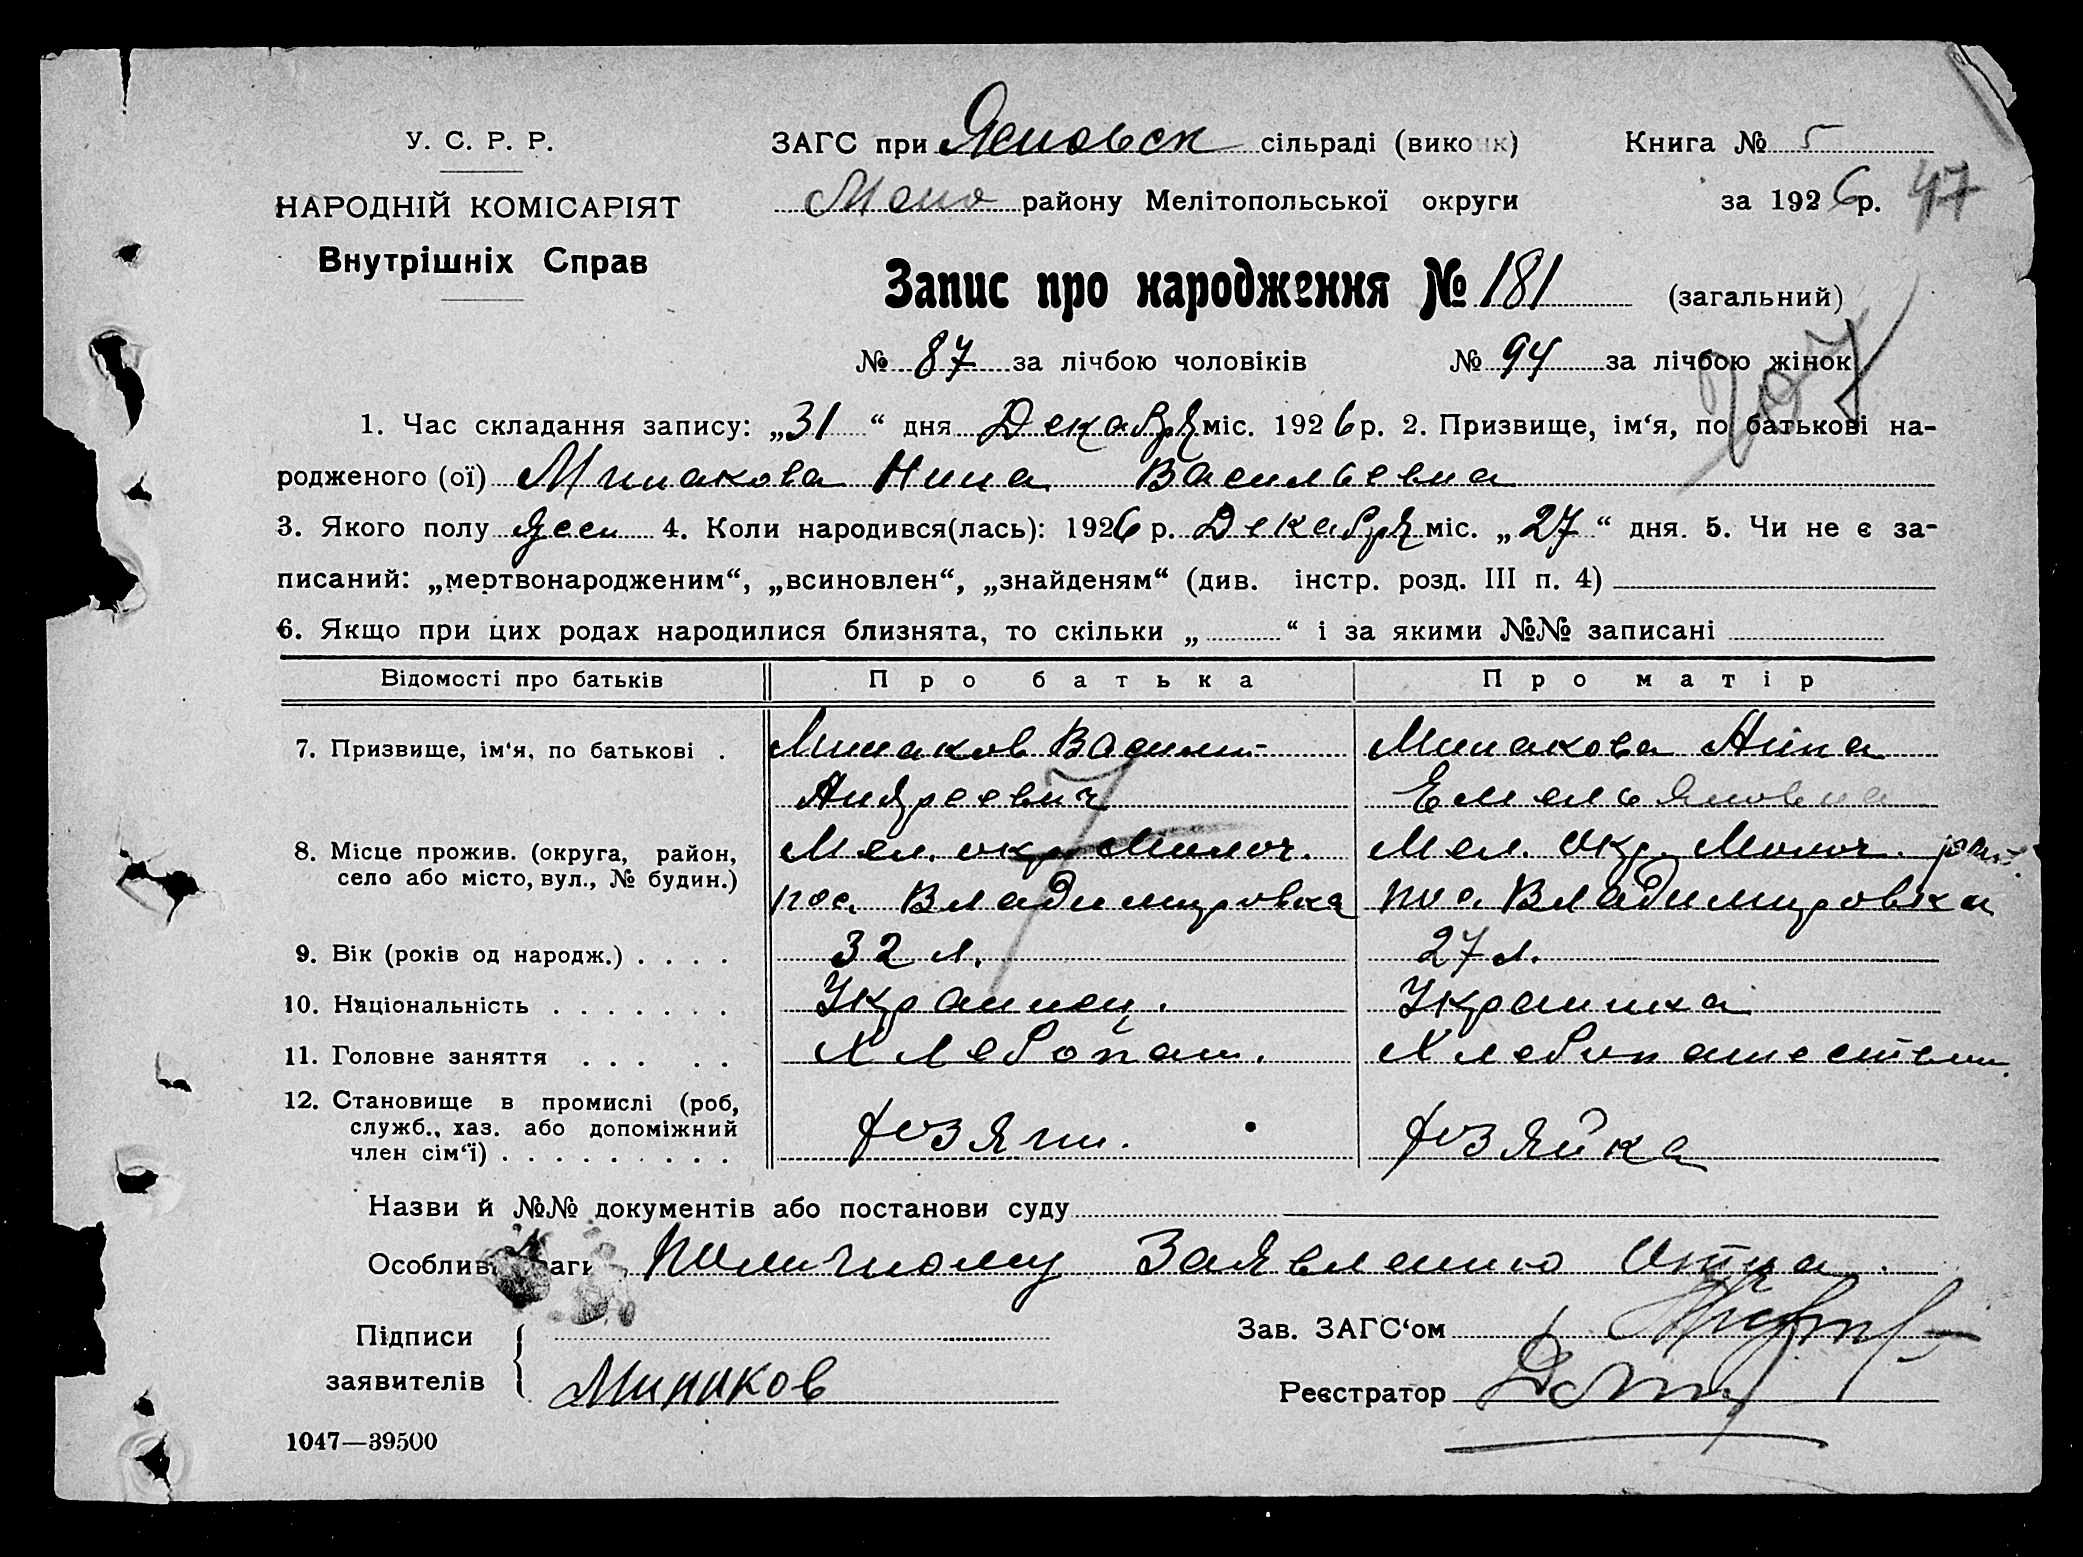 У. С. Р. Р.
НАРОДНІЙ КОМІСАРІЯТ
Внутрішніх Справ
ЗАГС при Ясиовск сільраді (вико к)
района Мелітопольської округи
Книга № 5
за 1926 р. 47
Запис про народження № 181 (загальний)
№ 87 за лічбою чоловіків № 94 за лічбою жінок
207
1. Час складання запису: „31“ дня Декабря міс. 1926 р. 2. Призвище, ім‘я, по батькові на-
родженого (ої) Минакова Нина Васильевна
3. Якого полу жен 4. Коли народився(лась): 1926 р. Декабря міс. „27“ дня. 5. Чи не є за-
писаний: „мертвонародженим“, „всиновлен“, „знайденям“ (див. інстр. розд. III п. 4)
6. Якщо при цих родах народилися близнята, то скільки „ “ і за якими №№ записані
Відомості про батьків Про батька Про матір
7. Призвище, ім‘я, по батькові . Минаков Васили- Минакова Нина
Андреевич Емельяновна
8. Місце прожив. (округа, район, Мел. окр. Молоч. Мел. Окр. Молоч. рай.
село або місто, вул., № будин.) пос. Владимировка пос. Владимировка
9. Вік (років од народж.) . . . . 32 л. 27 л.
10. Національність . . . . . . . Украинец. Украинка
11. Головне заняття . . . . . Хлебопаш. Хлебопашеством
12. Становище в промислі (роб, служб., хаз. або допоміжний член сім‘ї) . . . . . . . . . хозяин. хозяйка
Назви й №№ документів або постанови суду
Особливі ваги По личному Заявлению Отца.
Підписи заявителів Минаков
Зав. ЗАГС‘ом
Реєстратор
1047—39500